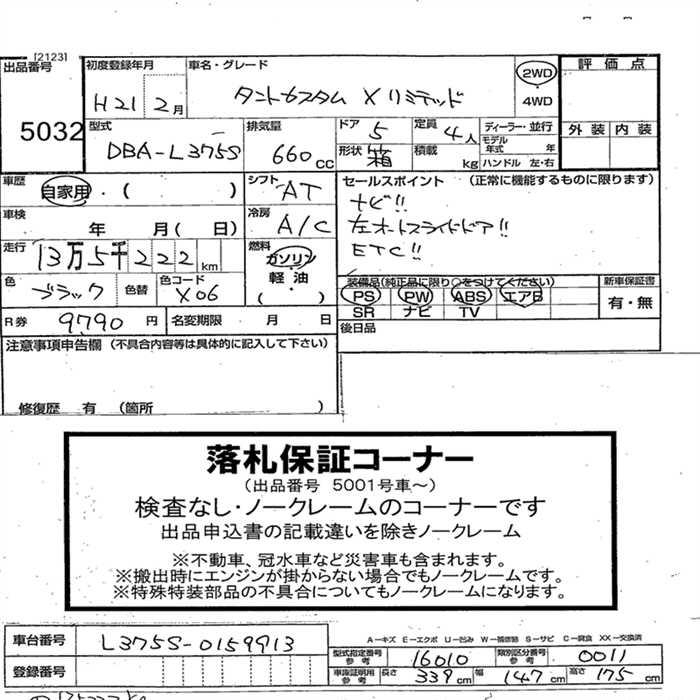 [2123]
出品番号
5032
初度登録年月
H21 2月
車名・グレード
タントカスタム X リミテッド
2WD
4WD
評価点
外装 内装
型式
DBA-L375S
排気量
660cc
ドア 5
形状 箱
定員 4人
積載 kg
ディーラー・並行
モデル年式 年
ハンドル 左・右
車歴
自家用・( )
シフト AT
車検 年 月( 日)
冷房 A/C
走行 13万5千222km
燃料
ガソリン
軽油
( )
色 ブラック
色替
色コード X06
R券 9790 円
名変期限 月 日
セールスポイント (正常に機能するものに限ります)
ナビ!!
左オートスライドドア!!
ETC!!
装備品(純正品に限り○をつけてください)
PS PW ABS エアB
SR ナビ TV
新車保証書
有・無
後日品
注意事項申告欄 (不具合内容等は具体的に記入して下さい)
修復歴 有 (箇所 )
落札保証コーナー
(出品番号 5001号車～)
検査なし・ノークレームのコーナーです
出品申込書の記載違いを除きノークレーム
※不動車、冠水車など災害車も含まれます。
※搬出時にエンジンが掛からない場合でもノークレームです。
※特殊特装部品の不具合についてもノークレームになります。
車台番号 L375S-0159913
登録番号
A－キズ E－エクボ U－凹み W－補修跡 S－サビ C－腐食 XX－交換済
型式指定番号参考 16010
類別区分番号参考 0011
車庫証明用参考 長さ 339cm 幅 147cm 高さ 175cm